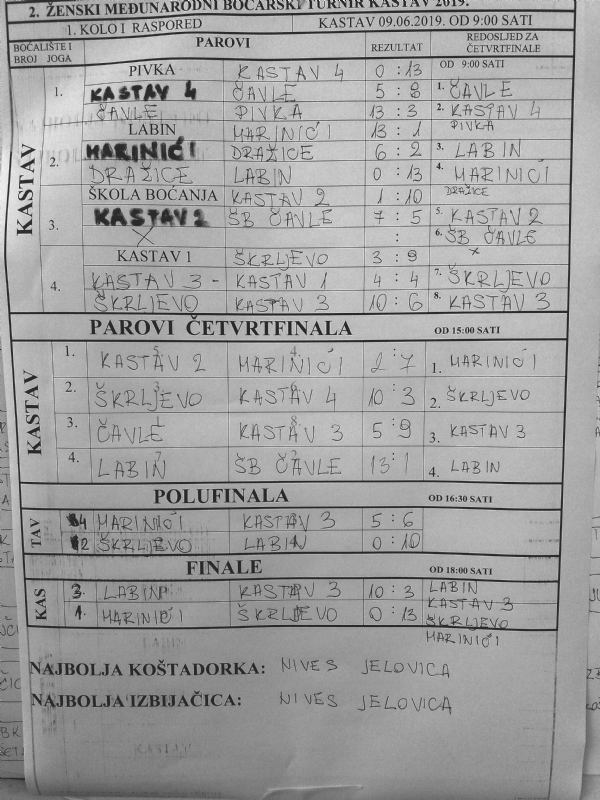 2. ŽENSKI MEĐUNARODNI BOĆARSKI TURNIR KASTAV 2019.
1. KOLO I RASPORED KASTAV 09.06.2019. OD 9:00 SATI
BOĆALIŠTE I BROJ JOGA PAROVI REZULTAT REDOSLJED ZA ČETVRTFINALE
KASTAV
PIVKA KASTAV 4 0 : 13 OD 9:00 SATI
1. KASTAV 4 ČAVLE 5 : 8 1. ČAVLE
ČAVLE PIVKA 13 : 3 2. KASTAV 4
PIVKA
LABIN MARINIĆI 13 : 1
2. MARINIĆI DRAŽICE 6 : 2 3. LABIN
DRAŽICE LABIN 0 : 13 4. MARINIĆI
DRAŽICE
ŠKOLA BOĆANJA KASTAV 2 1 : 10
3. KASTAV 2 ŠB ČAVLE 7 : 5 5. KASTAV 2
X : 6. ŠB ČAVLE
X
KASTAV 1 ŠKRLJEVO 3 : 9
4. KASTAV 3 - KASTAV 1 4 : 4 7. ŠKRLJEVO
ŠKRLJEVO KASTAV 3 10 : 6 8. KASTAV 3
PAROVI ČETVRTFINALA OD 15:00 SATI
KASTAV
1. KASTAV 2 MARINIĆI 2 : 7 1. MARINIĆI
2. ŠKRLJEVO KASTAV 4 10 : 3 2. ŠKRLJEVO
3. ČAVLE KASTAV 3 5 : 9 3. KASTAV 3
4. LABIN ŠB ČAVLE 13 : 1 4. LABIN
POLUFINALA OD 16:30 SATI
TAV
4 MARINIĆI KASTAV 3 5 : 6
2 ŠKRLJEVO LABIN 0 : 10
FINALE OD 18:00 SATI
KAS
3. LABIN KASTAV 3 10 : 3 LABIN
KASTAV 3
1. MARINIĆI ŠKRLJEVO 0 : 13 ŠKRLJEVO
MARINIĆI
NAJBOLJA KOŠTADORKA: NIVES JELOVICA
NAJBOLJA IZBIJAČICA: NIVES JELOVICA